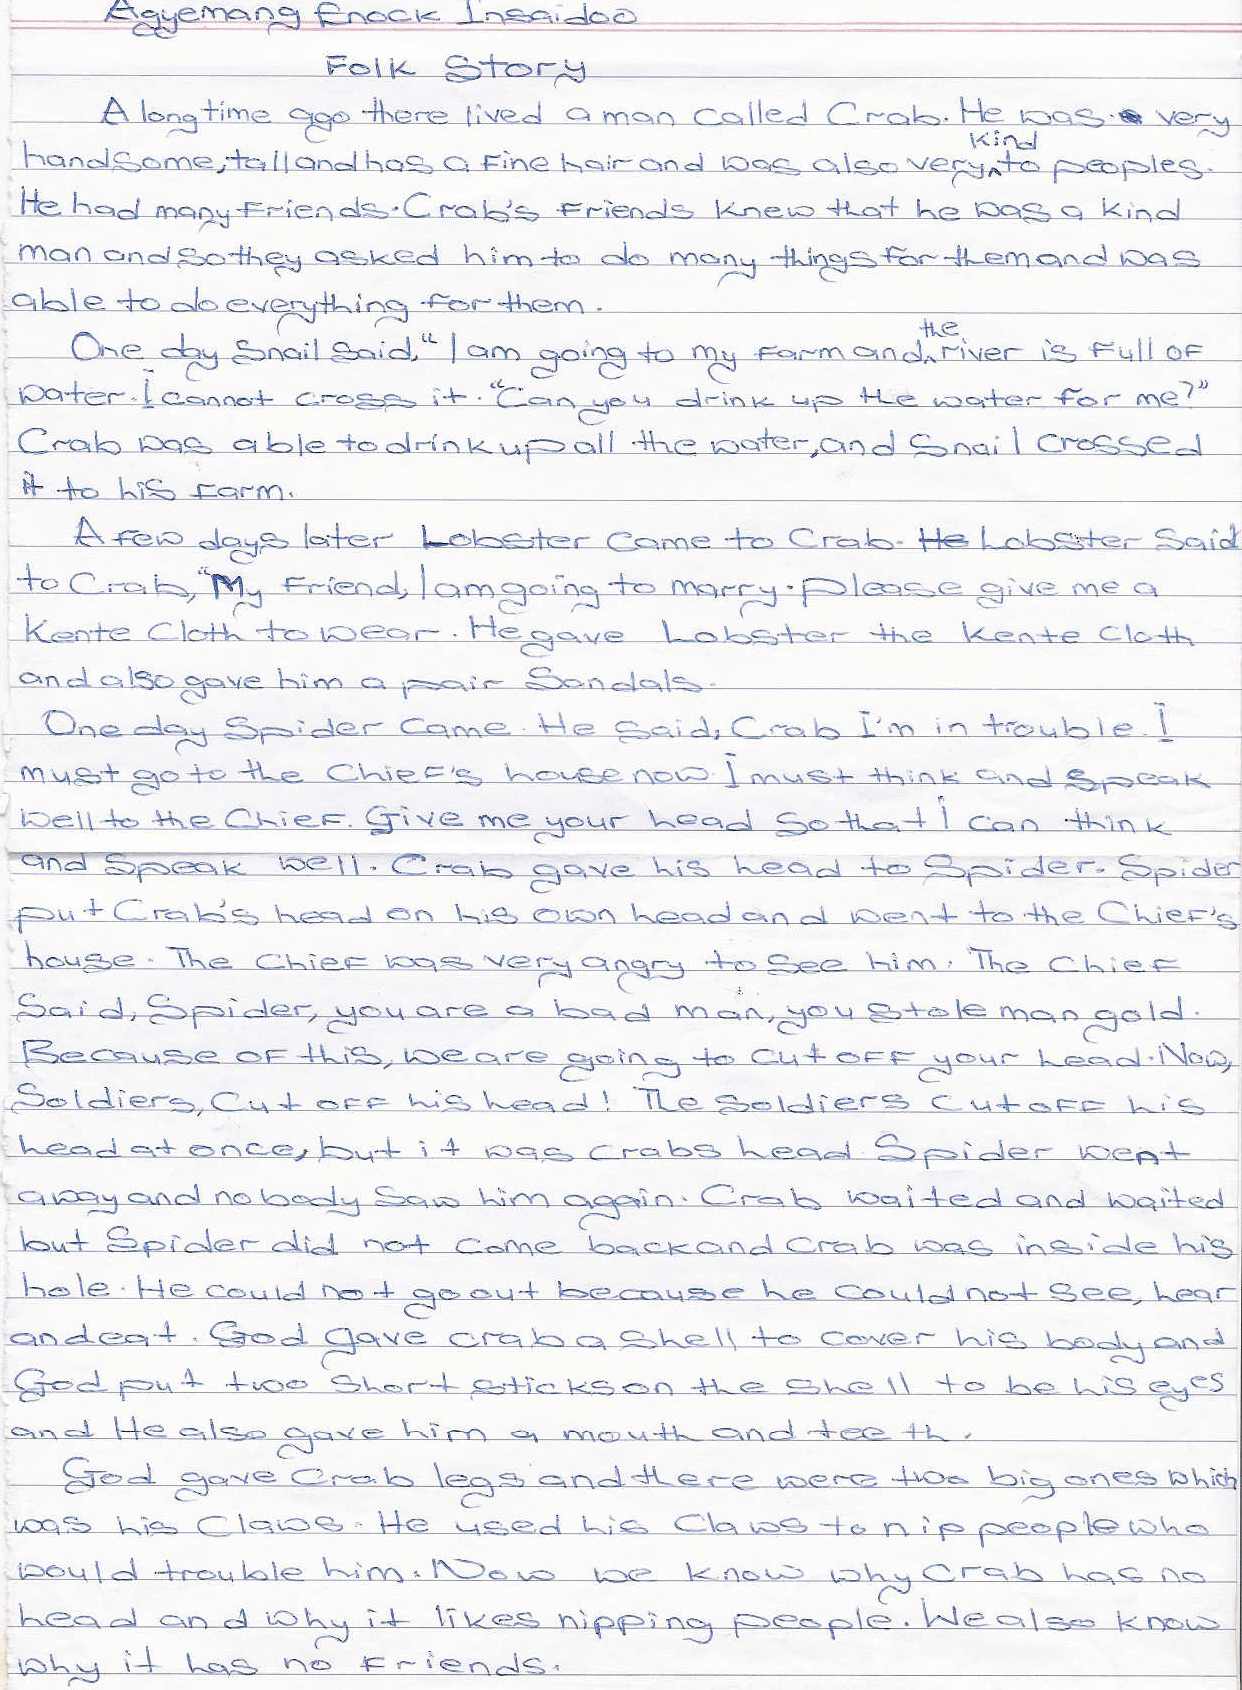 Agyemang Enock Insaidoo
Folk Story
A long time ago there lived a man called Crab. He was very
handsome, tall and has a fine hair and was also very kind to peoples.
He had many friends. Crab's friends knew that he was a kind
man and so they asked him to do many things for them and was
able to do everything for them.
One day Snail said, "I am going to my farm and the river is full of
water. I cannot cross it. "Can you drink up the water for me?"
Crab was able to drink up all the water, and Snail crossed
it to his farm.
A few days later Lobster came to Crab. He Lobster Said
to Crab, "My friend, I am going to marry. please give me a
Kente Cloth to wear. He gave Lobster the Kente Cloth
and also gave him a pair Sandals.
One day Spider came. He said, Crab I'm in trouble. I
must go to the Chief's house now. I must think and speak
well to the Chief. Give me your head so that I can think
and speak well. Crab gave his head to Spider. Spider
put Crab's head on his own head and went to the Chief's
house. The Chief was very angry to see him. The Chief
Said, Spider, you are a bad man, you stole man gold.
Because of this, we are going to cut off your head. Now,
Soldiers, Cut off his head! The Soldiers cut off his
head at once, but it was crabs head Spider went
away and nobody saw him again. Crab waited and waited
but Spider did not come back and Crab was inside his
hole. He could not go out because he could not see, hear
and eat. God gave crab a shell to cover his body and
God put two short sticks on the shell to be his eyes
and He also gave him a mouth and teeth.
God gave Crab legs and there were two big ones which
was his Claws. He used his Claws to nip people who
would trouble him. Now we know why Crab has no
head and why it likes nipping people. We also know
why it has no friends.